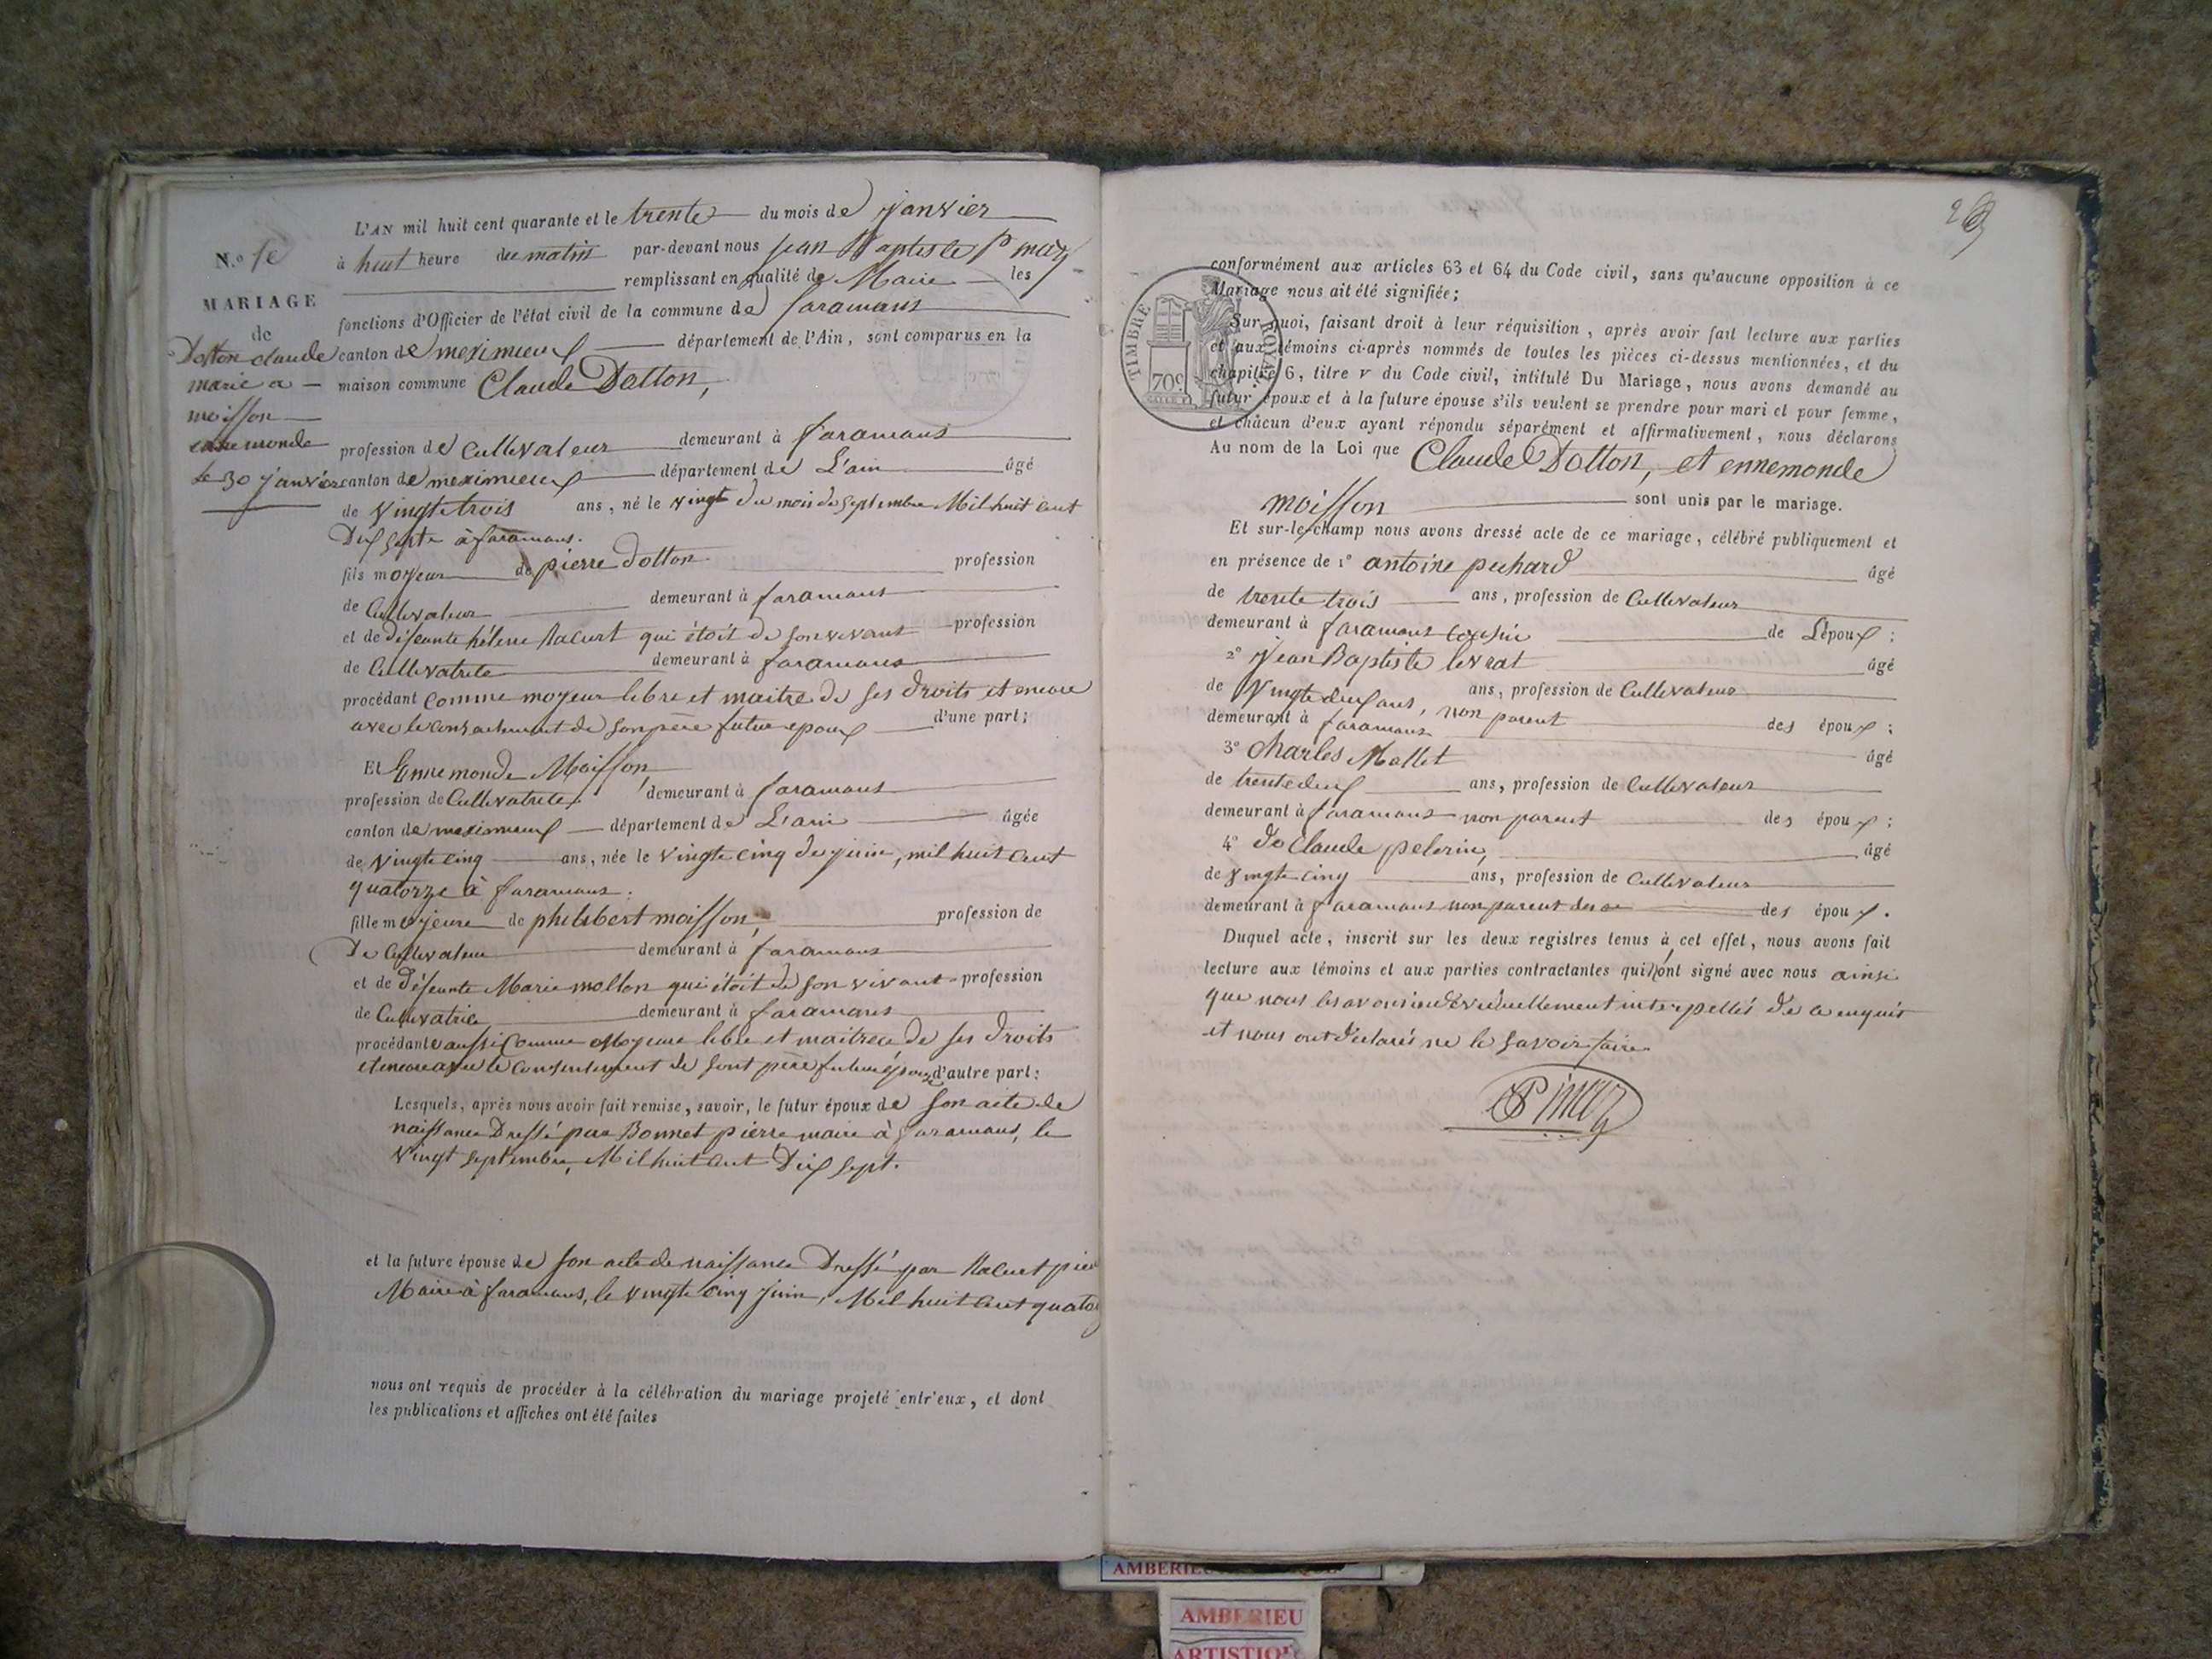 N.o 1e
MARIAGE
de
Dotton claude
marié a
moisson
ennemonde
le 30 janvier
L'AN mil huit cent quarante et le trente du mois de janvier
à huit heure du matin par-devant nous jean Baptiste
remplissant en qualité de Maire les
fonctions d'Officier de l'état civil de la commune de faramans
canton de meximieux département de l'Ain, sont comparus en la
maison commune Claude Dotton,
profession de Cultivateur demeurant à faramans
canton de meximieux département de L'ain âgé
de vingt trois ans, né le vingt du mois de septembre Mil huit cent
Dix septe à faramans.
fils majeur de pierre dotton profession
de Cultivateur demeurant à faramans
et de défeunte hélène qui étoit de son vivant profession
de Cultivatrice demeurant à faramans
procédant comme majeur libre et maitre de ses droits et encore
avec le consentement de son père futur epoux d'une part;
Et Ennemonde Moisson,
profession de Cultivatrice. demeurant à faramans
canton de meximieux département de L'ain âgée
de vingt cinq ans, née le vingte cinq de juin, mil huit cent
quatorze à faramans.
fille majeure de philibert moisson, profession de
De Cultivateur demeurant à faramans
et de défeunte Marie mollon qui étoit de son vivant profession
de Cultivatrice demeurant à faramans
procédante aussi Comme Majeure libre et maitrece de ses droits
et encore avec le consentement de sont père future épouse d'autre part:
Lesquels, après nous avoir fait remise, savoir, le futur époux de son acte de
naissance Dressé par Bonnet pierre maire à faramans, le
vingt septembre, Mil huit cent Dix sept.
et la future épouse de son acte de naissance Dressé par
Maire à faramans, le vingte cinq juin, Mil huit cent
nous ont requis de procéder à la célébration du mariage projeté entr'eux, et dont
les publications et affiches ont été faites
TIMBRE ROYAL
70c
conformément aux articles 63 et 64 du Code civil, sans qu'aucune opposition à ce
Mariage nous ait été signifiée;
Sur quoi, faisant droit à leur réquisition, après avoir fait lecture aux parties
et aux témoins ci-après nommés de toutes les pièces ci-dessus mentionnées, et du
chapitre 6, titre v du Code civil, intitulé Du Mariage, nous avons demandé au
futur époux et à la future épouse s'ils veulent se prendre pour mari et pour femme,
et châcun d'eux ayant répondu séparément et affirmativement, nous déclarons
Au nom de la Loi que Claude Dotton, et ennemonde
moisson sont unis par le mariage.
Et sur-le-champ nous avons dressé acte de ce mariage, célébré publiquement et
en présence de 1o antoine âgé
de trente trois ans, profession de Cultivateur
demeurant à faramans cousin de L'époux;
2o Jean Baptiste levrat âgé
de vingte deux ans, ans, profession de Cultivateur
demeurant à faramans non parent des époux;
3o Charles Mallet âgé
de trente deux ans, profession de Cultivateur
demeurant à faramans non parent des époux;
4o Claude pelerin, âgé
de vingte cinq ans, profession de Cultivateur
demeurant à faramans non parent des époux.
Duquel acte, inscrit sur les deux registres tenus à cet effet, nous avons fait
lecture aux témoins et aux parties contractantes qui n'ont signé avec nous ainsi
que nous les avons individuellement interpellés de ce enquis
et nous ont déclarés ne le savoir faire
AMBERIEU
AMBERIEU